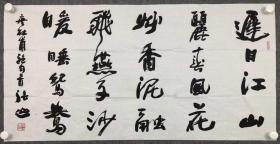 遲日江山
麗春風花
艸香泥融
飛燕子沙
暖睡鴛鴦
杜甫